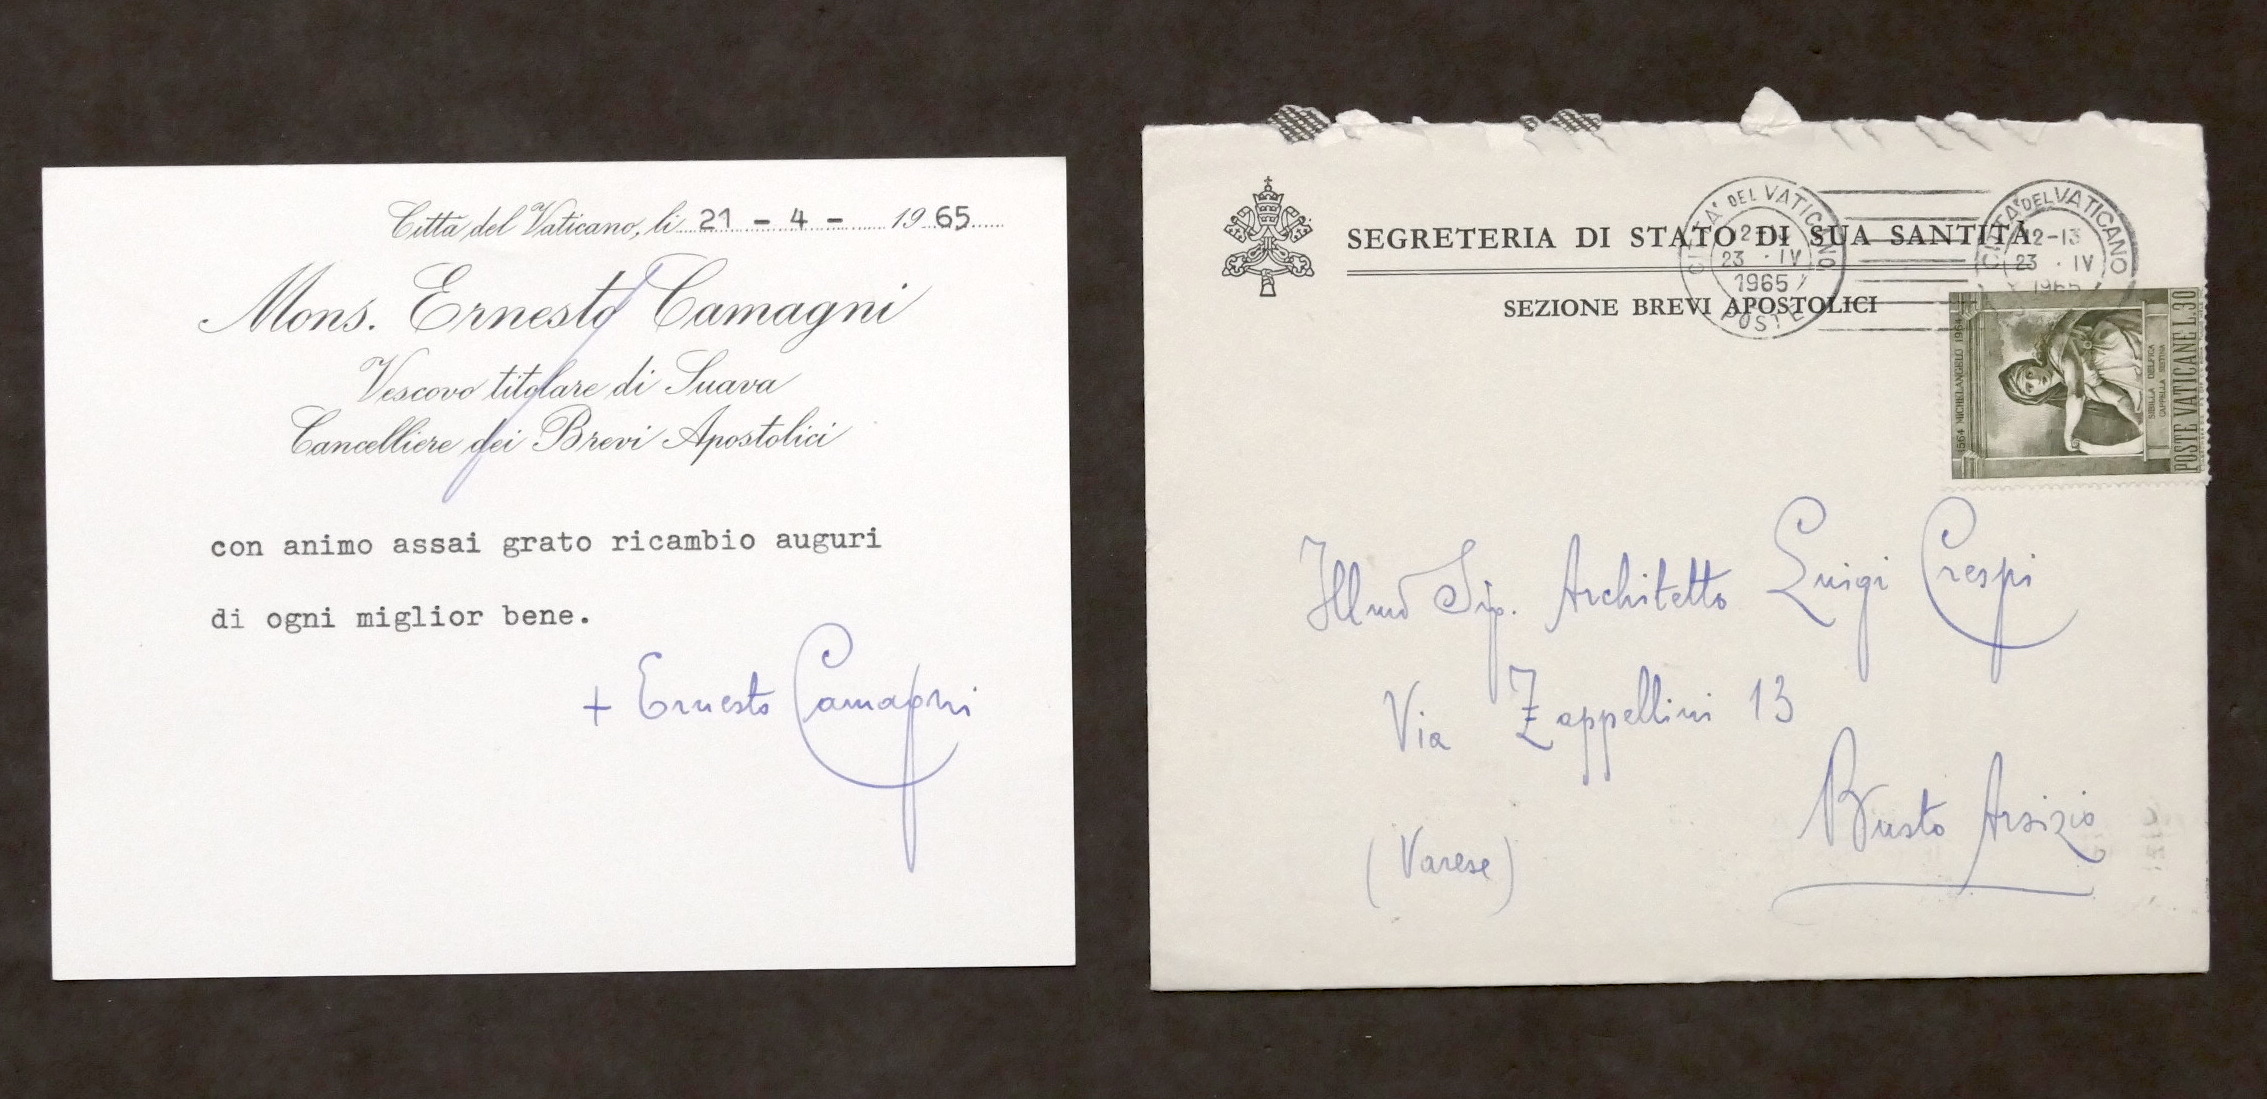 Città del Vaticano, li 21 - 4 - 1965
Mons. Ernesto Camagni
Vescovo titolare di Suava
Cancelliere dei Brevi Apostolici
con animo assai grato ricambio auguri
di ogni miglior bene.
+ Ernesto Camagni
SEGRETERIA DI STATO DI SUA SANTITÀ
SEZIONE BREVI APOSTOLICI
CITTA' DEL VATICANO
23 · IV
1965
POSTE
CITTA' DEL VATICANO
12-13
23 · IV
1965
1564 MICHELANGELO 1964
SIBILLA DELFICA
CAPPELLA SISTINA
POSTE VATICANE L.30
Illmo Sig. Architetto Luigi Crespi
Via Zappellini 13
Busto Arsizio
(Varese)